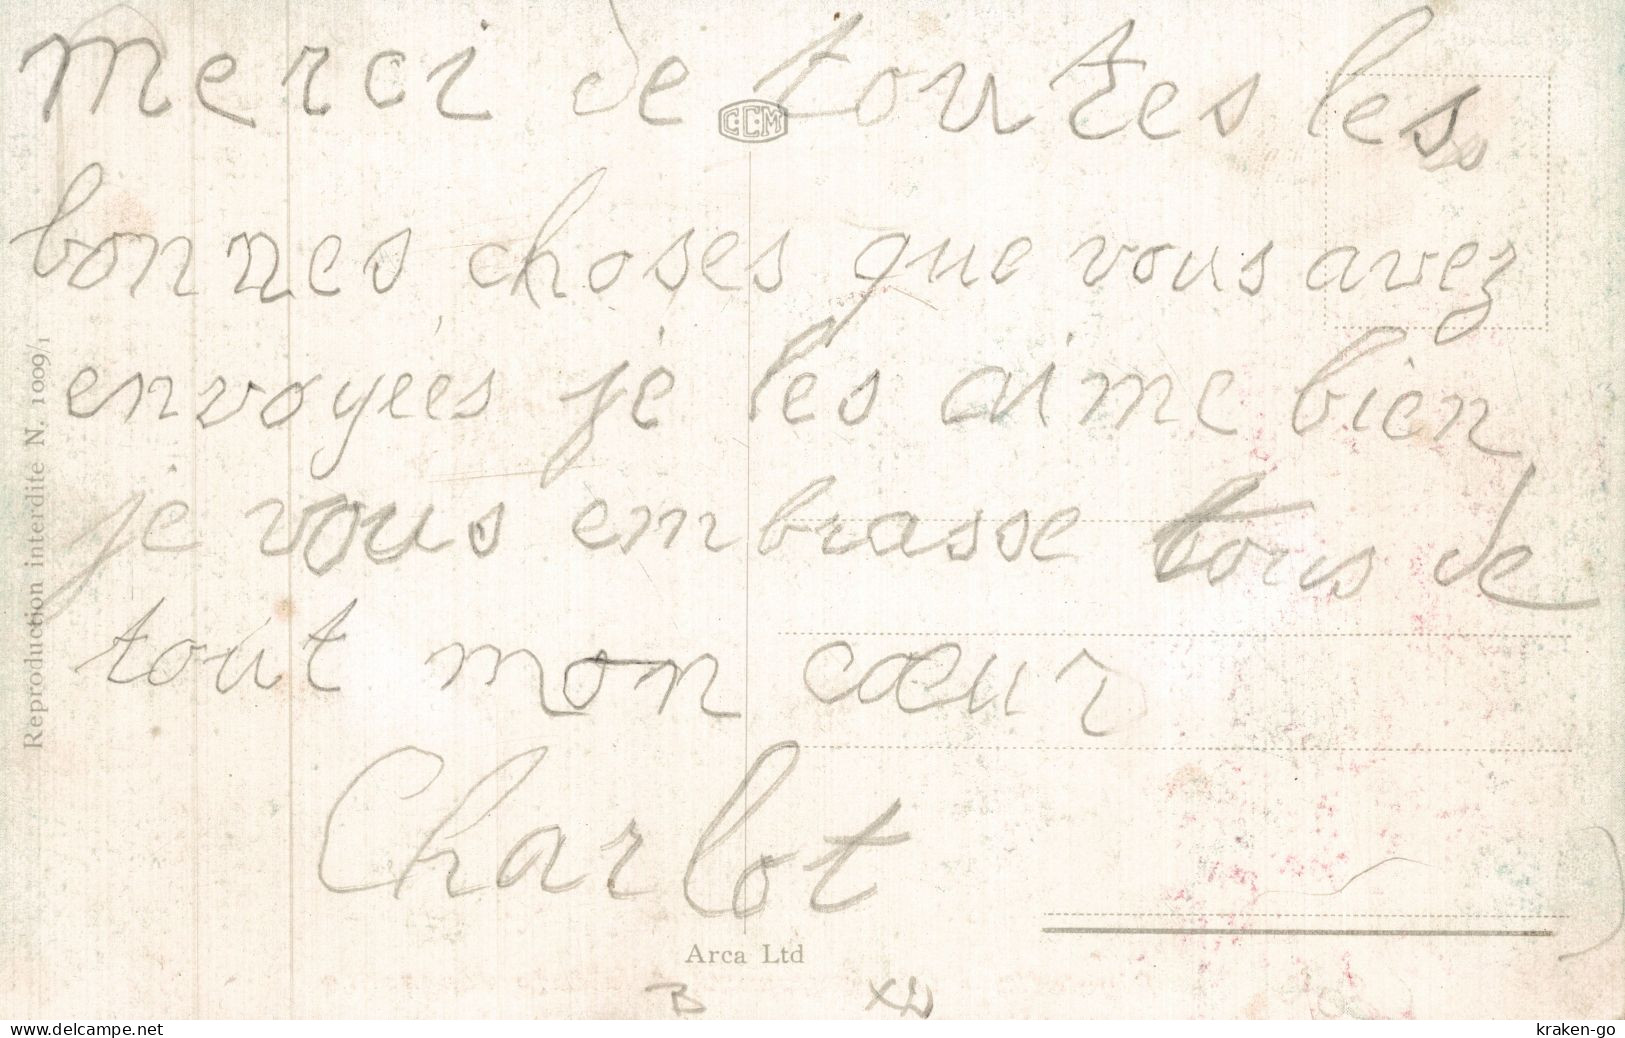 merci de toutes les
C.C.M
bonnes choses que vous avez
envoyées je les aime bien
je vous embrasse tous de
tout mon cœur
Charlot
Reproduction interdite N. 1009/1
Arca Ltd
B
www.delcampe.net
kraken-go